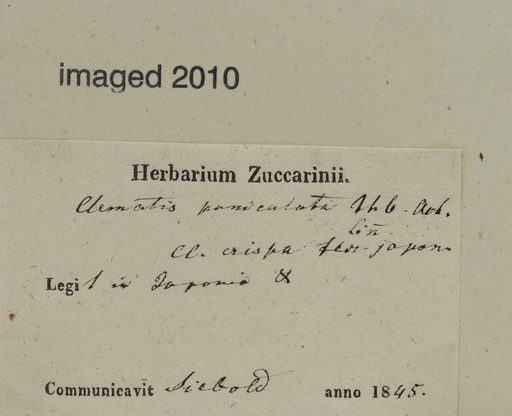 imaged 2010
Herbarium Zuccarinii.
Clematis paniculata Thb.
Lin
Cl. crispa japon.
Legit in Japonia
Communicavit Siebold anno 1845.